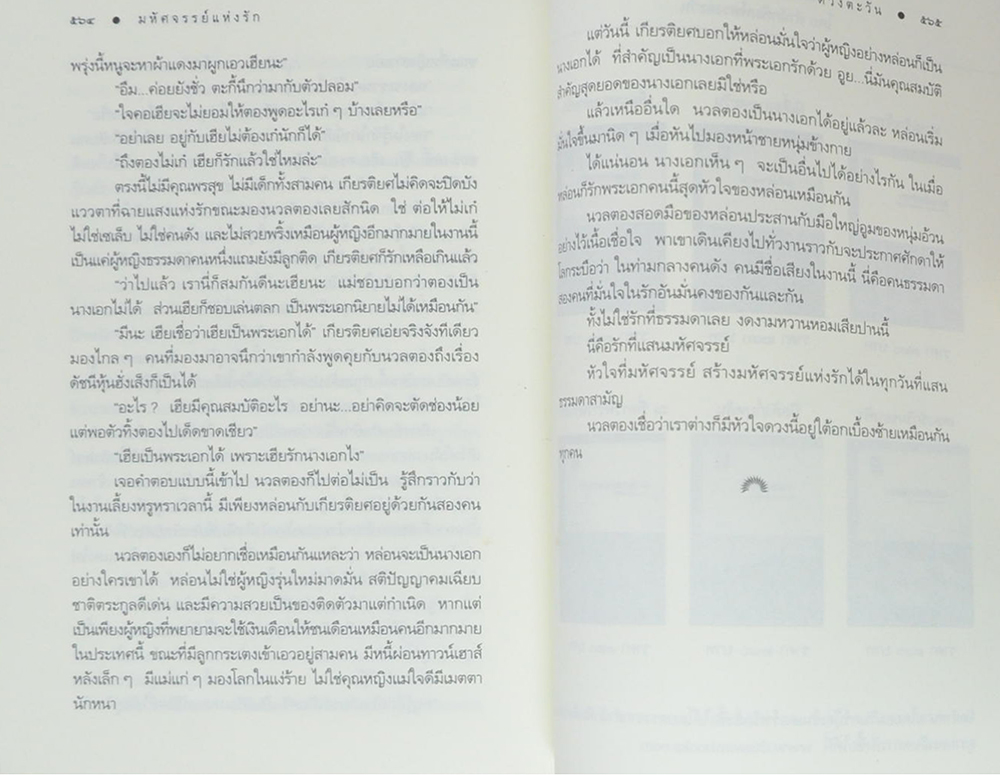 ๕๖๔ ● มหัศจรรย์แห่งรัก
พรุ่งนี้หนูจะหาผ้าแดงมาผูกเอวเฮียนะ”
“อืม...ค่อยยังชั่ว ตะกี้นึกว่ามากับตัวปลอม”
“ใจคอเฮียจะไม่ยอมให้ตองพูดอะไรเก๋ ๆ บ้างเลยหรือ”
“อย่าเลย อยู่กับเฮียไม่ต้องเก๋นักก็ได้”
“ถึงตองไม่เก๋ เฮียก็รักแล้วใช่ไหมล่ะ”
ตรงนี้ไม่มีคุณพรสุข ไม่มีเด็กทั้งสามคน เกียรติยศไม่คิดจะปิดบัง
แววตาที่ฉายแสงแห่งรักขณะมองนวลตองเลยสักนิด ใช่ ต่อให้ไม่เก๋
ไม่ใช่เซเล็บ ไม่ใช่คนดัง และไม่สวยพริ้งเหมือนผู้หญิงอีกมากมายในงานนี้
เป็นแค่ผู้หญิงธรรมดาคนหนึ่งแถมยังมีลูกติด เกียรติยศก็รักเหลือเกินแล้ว
“ว่าไปแล้ว เรานี่ก็สมกันดีนะเฮียนะ แม่ชอบบอกว่าตองเป็น
นางเอกไม่ได้ ส่วนเฮียก็ชอบเล่นตลก เป็นพระเอกนิยายไม่ได้เหมือนกัน”
“มีนะ เฮียเชื่อว่าเฮียเป็นพระเอกได้” เกียรติยศเอ่ยจริงจังทีเดียว
มองไกล ๆ คนที่มองมาอาจนึกว่าเขากำลังพูดคุยกับนวลตองถึงเรื่อง
ดัชนีหุ้นฮั่งเส็งก็เป็นได้
“อะไร? เฮียมีคุณสมบัติอะไร อย่านะ...อย่าคิดจะตัดช่องน้อย
แต่พอตัวทิ้งตองไปเด็ดขาดเชียว”
“เฮียเป็นพระเอกได้ เพราะเฮียรักนางเอกไง”
เจอคำตอบแบบนี้เข้าไป นวลตองก็ไปต่อไม่เป็น รู้สึกราวกับว่า
ในงานเลี้ยงหรูหราเวลานี้ มีเพียงหล่อนกับเกียรติยศอยู่ด้วยกันสองคน
เท่านั้น
นวลตองเองก็ไม่อยากเชื่อเหมือนกันแหละว่า หล่อนจะเป็นนางเอก
อย่างใครเขาได้ หล่อนไม่ใช่ผู้หญิงรุ่นใหม่มาดมั่น สติปัญญาคมเฉียบ
ชาติตระกูลดีเด่น และมีความสวยเป็นของติดตัวมาแต่กำเนิด หากแต่
เป็นเพียงผู้หญิงที่พยายามจะใช้เงินเดือนให้ชนเดือนเหมือนคนอีกมากมาย
ในประเทศนี้ ขณะที่มีลูกกระเตงเข้าเอวอยู่สามคน มีหนี้ผ่อนทาวน์เฮาส์
หลังเล็ก ๆ มีแม่แก่ ๆ มองโลกในแง่ร้าย ไม่ใช่คุณหญิงแม่ใจดีมีเมตตา
นักหนา
ดวงตะวัน ● ๕๖๕
แต่วันนี้ เกียรติยศบอกให้หล่อนมั่นใจว่าผู้หญิงอย่างหล่อนก็เป็น
นางเอกได้ ที่สำคัญเป็นนางเอกที่พระเอกรักด้วย อุย...นี่มันคุณสมบัติ
สำคัญสุดยอดของนางเอกเลยมิใช่หรือ
แล้วเหนืออื่นใด นวลตองเป็นนางเอกได้อยู่แล้วละ หล่อนเริ่ม
มั่นใจขึ้นมานิด ๆ เมื่อหันไปมองหน้าชายหนุ่มข้างกาย
ได้แน่นอน นางเอกเห็น ๆ จะเป็นอื่นไปได้อย่างไรกัน ในเมื่อ
หล่อนก็รักพระเอกคนนี้สุดหัวใจของหล่อนเหมือนกัน
นวลตองสอดมือของหล่อนประสานกับมือใหญ่อูมของหนุ่มอ้วน
อย่างไว้เนื้อเชื่อใจ พาเขาเดินเคียงไปทั่วงานราวกับจะประกาศศักดาให้
โลกระบือว่า ในท่ามกลางคนดัง คนมีชื่อเสียงในงานนี้ นี่คือคนธรรมดา
สองคนที่มั่นใจในรักอันมั่นคงของกันและกัน
ทั้งไม่ใช่รักที่ธรรมดาเลย งดงามหวานหอมเสียปานนี้
นี่คือรักที่แสนมหัศจรรย์
หัวใจที่มหัศจรรย์ สร้างมหัศจรรย์แห่งรักได้ในทุกวันที่แสน
ธรรมดาสามัญ
นวลตองเชื่อว่าเราต่างก็มีหัวใจดวงนี้อยู่ใต้อกเบื้องซ้ายเหมือนกัน
ทุกคน